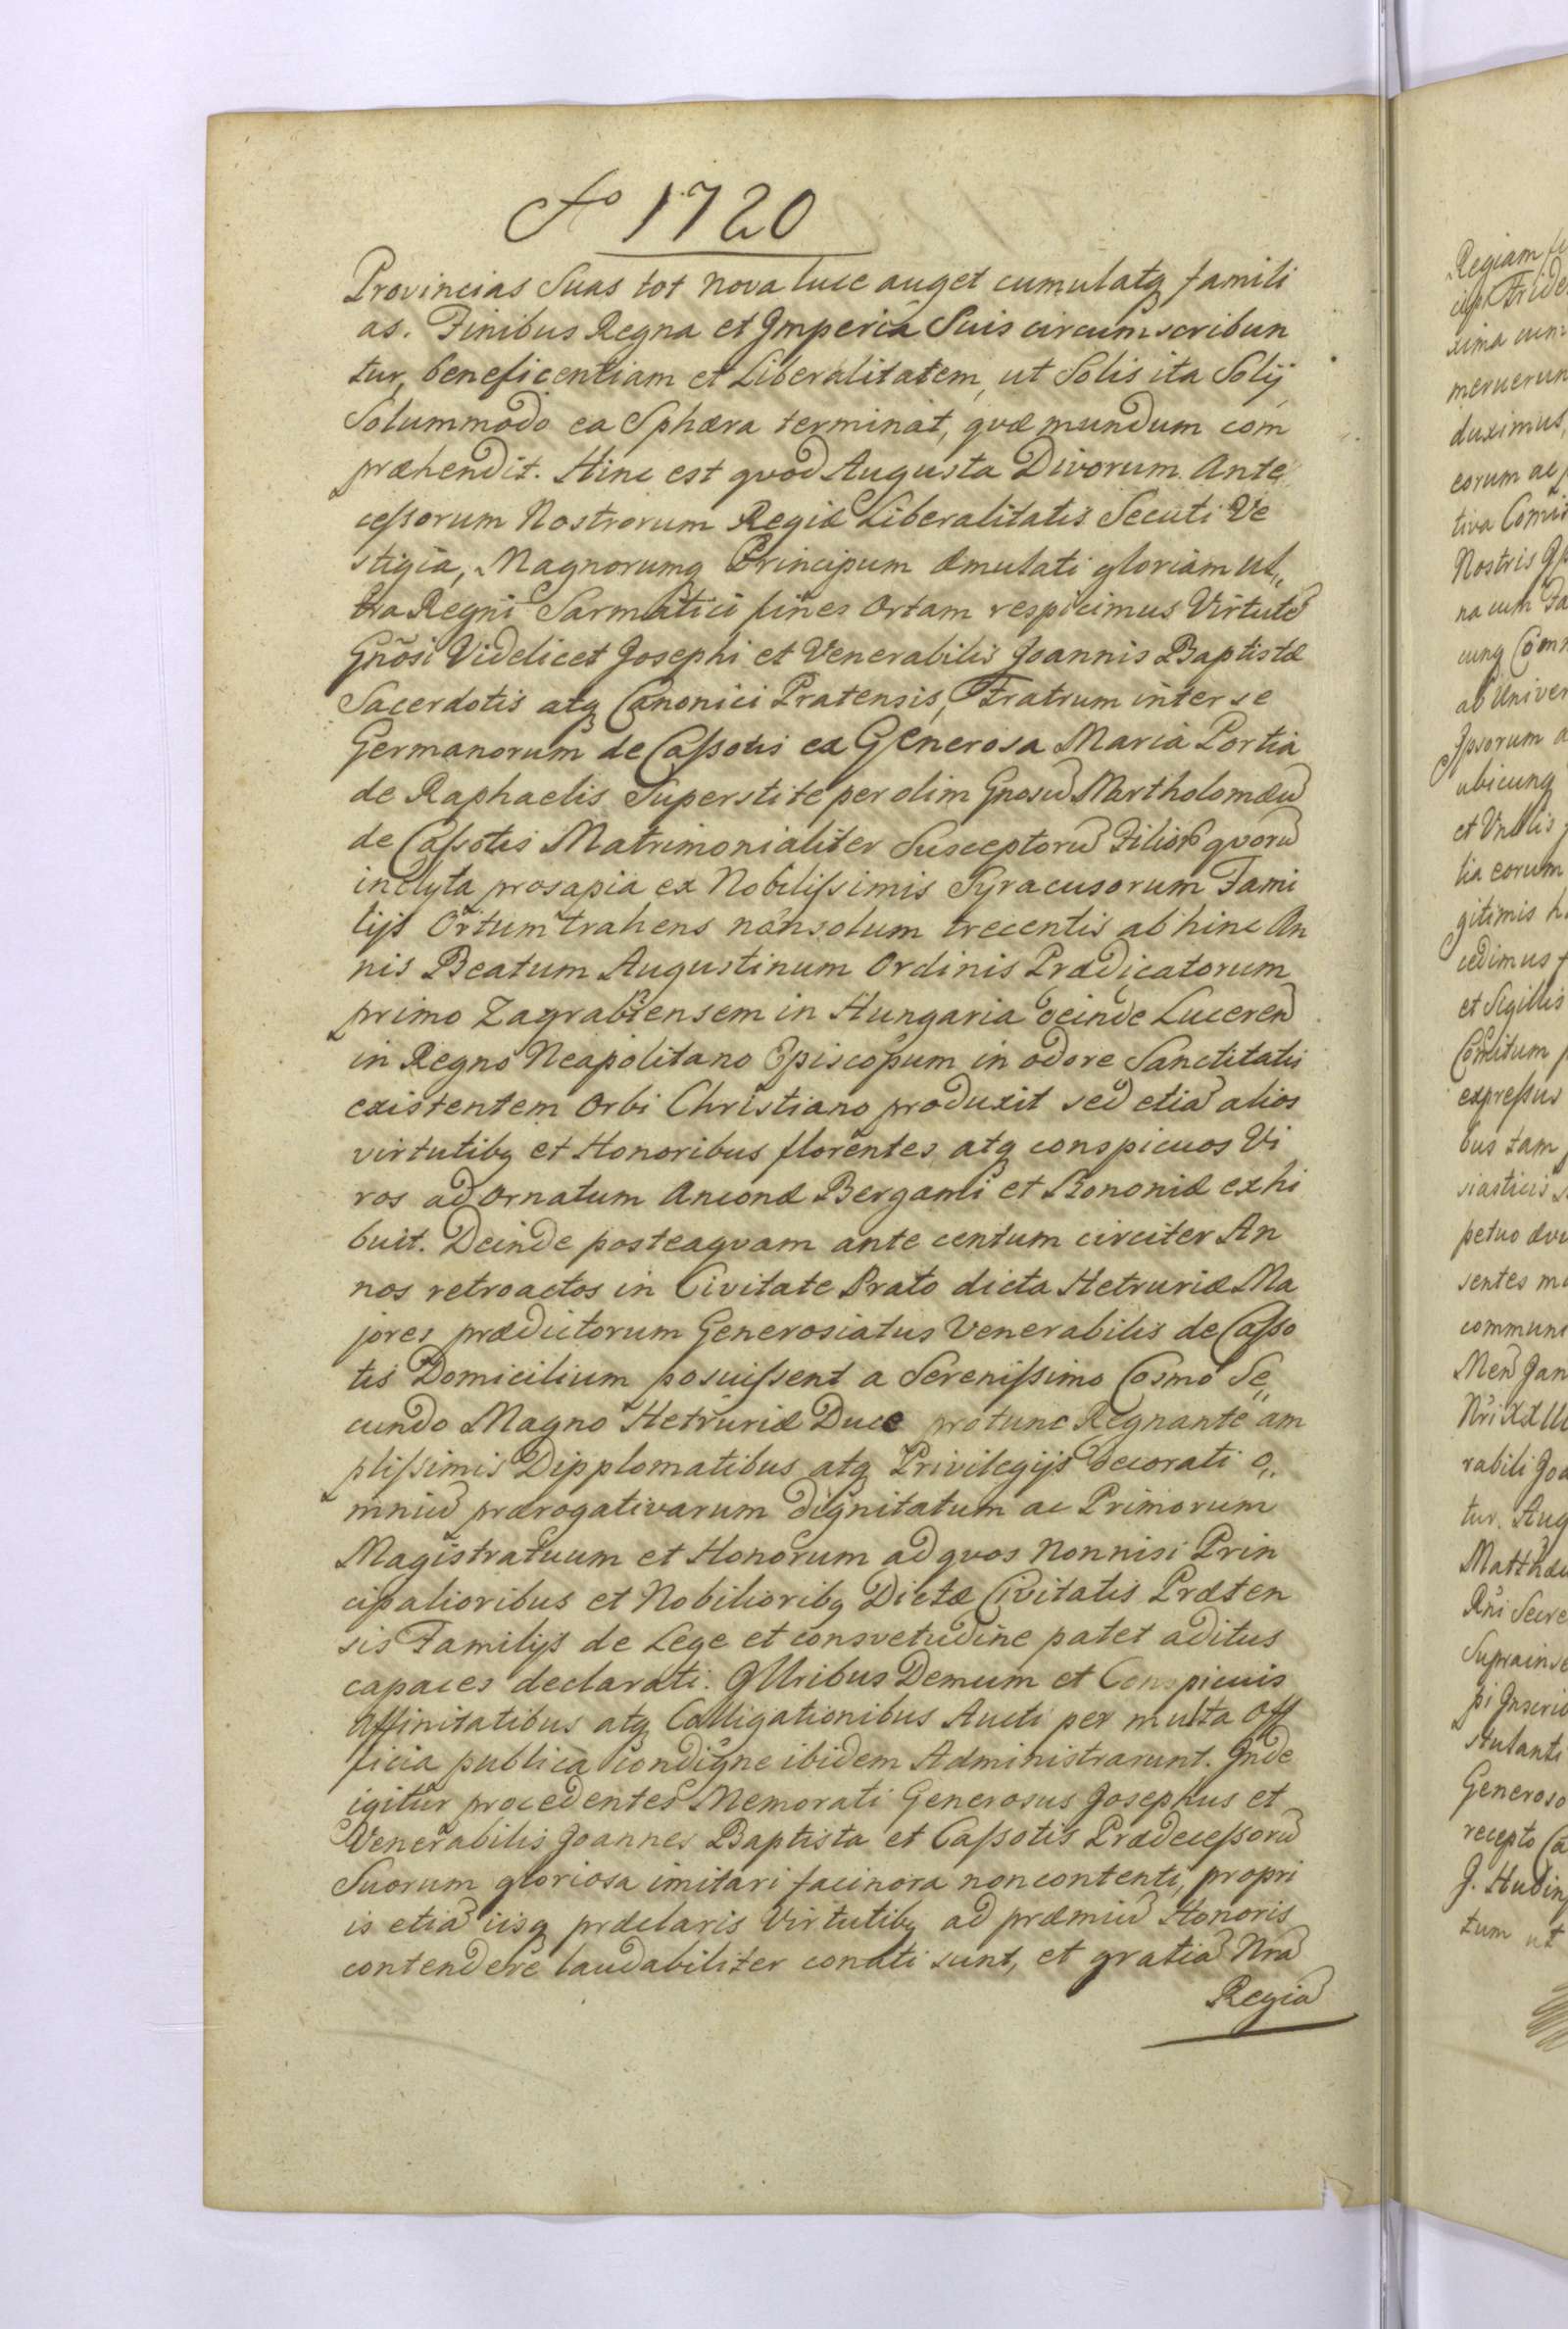 Ao 1720
Provincias Suas tot nova luce auget cumulatq famili
as. Finibus Regna et Imperia Suis circumscribun
tur, beneficentiam et Liberalitatem, ut Solis ita Solij
Solummodo ea Sphæra terminat, qvæ mundum com
præhendit. Hinc est qvod Augusta Divorum Ante
cessorum Nostrorum Regiæ Liberalitatis Secuti Ve
stigia, Magnorumq Principum æmulati gloriam ul„
tra Regni Sarmatici fines Ortam respicimus Virtutē
Gnosi Videlicet Josephi et Venerabilis Joannis Baptistæ
Sacerdotis atq Canonici Pratensis, Fratrum inter se
Germanorum de Cassotis ex Generosa Maria Portia
de Raphaelis Superstite per olim Gnosū Martholomæū
de Cassotis Matrimonialiter Susceptorū Filiorū qvorū
inclyta prosapia ex Nobilissimis Syracusorum Fami
lijs Ortum trahens nonsolum trecentis abhinc An
nis Beatum Augustinum Ordinis Prædicatorum
primo Zagrabiensem in Hungaria deinde Luceren̄
in Regno Neapolitano Episcopum in odore Sanctitatis
existentem Orbi Christiano produxit sed etiā alios
virtutibq et Honoribus florentes atq conspicuos Vi
ros ad Ornatum Anconæ Bergami et Bononiæ exhi
buit. Deinde posteaqvam ante centum circiter An
nos retroactos in Civitate Prato dicta Hetruriæ Ma
jores prædictorum Generosiatus Venerabilis de Casso
tis Domicilium posuissent a Serenissimo Cosmo Se„
cundo Magno Hetruriæ Duce protunc Regnante am
plissimis Dipplomatibus atq Privilegijs decorati o„
mniū prærogativarum dignitatum ac Primorum
Magistratuum et Honorum ad qvos nonnisi Prin
cipalioribus et Nobilioribq Dictæ Civitatis Præten
sis Familijs de Lege et consvetudine patet aditus
capaces declarati. Illribus Demum et Conspicuis
Affinitatibus atq Colligationibus Aucti per multa Off
ficia publica condigne ibidem Administrarunt. Inde
igitur procedentes Memorati Generosus Josephus et
Venerabilis Joannes Baptista et Cassotis Prædecessorū
Suorum gloriosa imitari facinora non contenti, propri
is etiā iisq præclaris Virtutibq ad præmiū Honoris
contendere laudabiliter conati sunt, et gratiā Nrā
Regiā